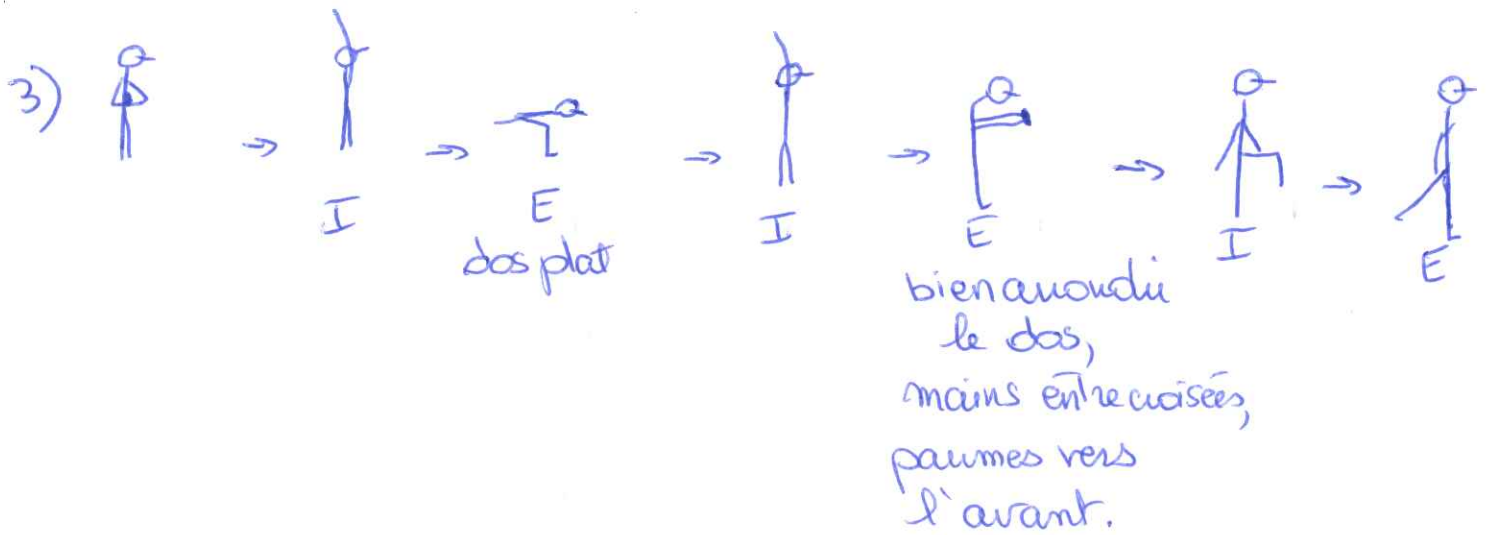 3)
I
E
I
E
I
E
dos plat
bien arrondir
le dos,
mains entrecroisées,
paumes vers
l'avant.